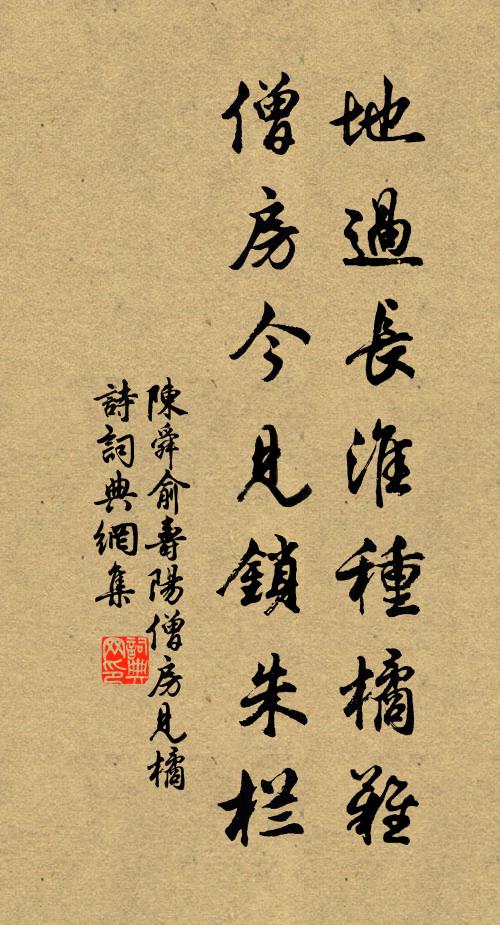 地過長淮種橘難
僧房今見鎖朱栏
陳舜俞壽陽僧房見橘
詩詞典網集
詞典网印